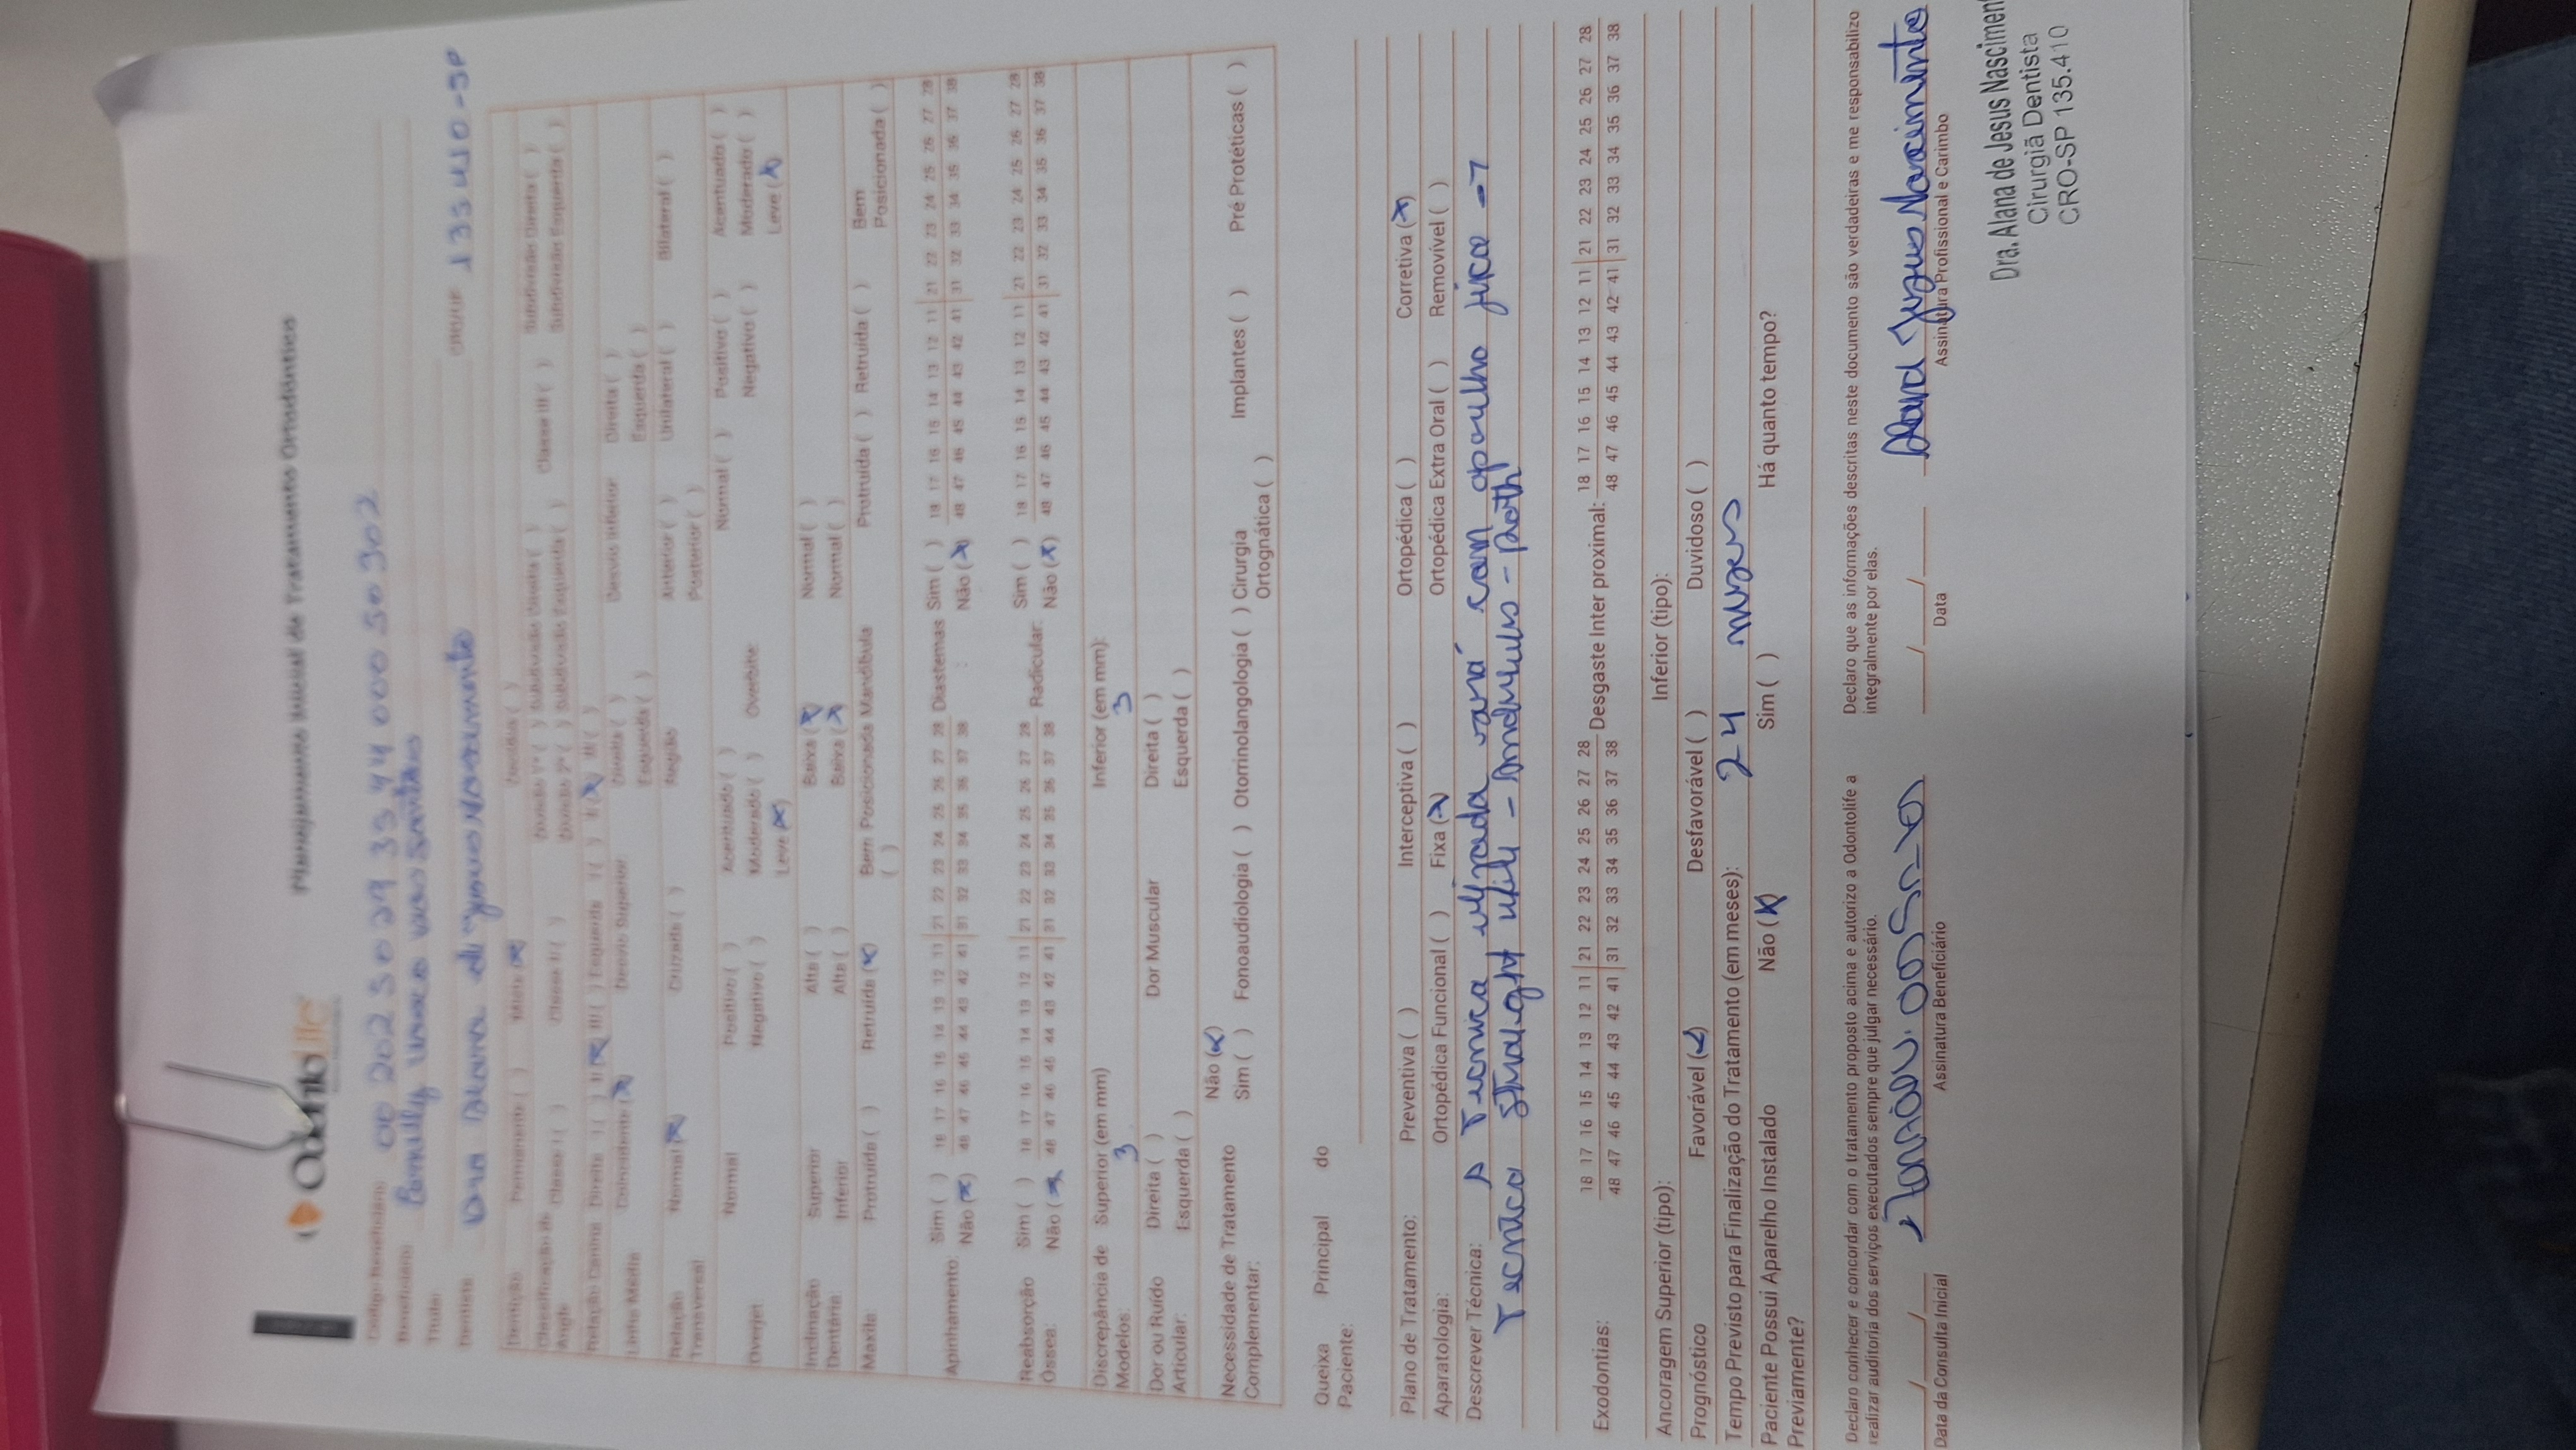 OdontoLife
Planejamento Inicial de Tratamento Ortodôntico
Código Beneficiário: 00 202 5029 3344 000 50302
Beneficiário:
Titular:
Dentista: Dra Alana de Jesus Nascimento CRO/UF 135410-SP
Dentição: Permanente ( ) Mista (x) Decídua ( )
Classificação de Angle: Classe I ( ) Classe II ( ) Divisão 1ª ( ) Subdivisão Direita ( ) Classe III ( ) Subdivisão Direita ( )
Divisão 2ª ( ) Subdivisão Esquerda ( ) Subdivisão Esquerda ( )
Relação Canino Direita I ( ) II (x) III ( ) Esquerda I ( ) II (x) III ( )
Linha Média Coincidente (x) Desvio Superior Direita ( ) Desvio Inferior Direita ( )
Esquerda ( ) Esquerda ( )
Relação Transversal Normal (x) Cruzada ( ) Região Anterior ( ) Unilateral ( ) Bilateral ( )
Posterior ( )
Overjet: Normal Positivo ( ) Acentuado ( ) Overbite: Normal ( ) Positivo ( ) Acentuado ( )
Negativo ( ) Moderado ( ) Negativo ( ) Moderado ( )
Leve (x) Leve (x)
Inclinação Dentária: Superior Alta ( ) Baixa (x) Normal ( )
Inferior Alta ( ) Baixa (x) Normal ( )
Maxila: Protruída ( ) Retruída (x) Bem Posicionada ( ) Mandíbula Protruída ( ) Retruída ( ) Bem Posicionada ( )
Apinhamento: Sim ( ) 18 17 16 15 14 13 12 11 21 22 23 24 25 26 27 28 Diastemas: Sim ( ) 18 17 16 15 14 13 12 11 21 22 23 24 25 26 27 28
Não (x) 48 47 46 45 44 43 42 41 31 32 33 34 35 36 37 38 Não (x) 48 47 46 45 44 43 42 41 31 32 33 34 35 36 37 38
Reabsorção Óssea: Sim ( ) 18 17 16 15 14 13 12 11 21 22 23 24 25 26 27 28 Radicular: Sim ( ) 18 17 16 15 14 13 12 11 21 22 23 24 25 26 27 28
Não (x) 48 47 46 45 44 43 42 41 31 32 33 34 35 36 37 38 Não (x) 48 47 46 45 44 43 42 41 31 32 33 34 35 36 37 38
Discrepância de Modelos: Superior (em mm) 3 Inferior (em mm): 3
Dor ou Ruído Articular: Direita ( ) Dor Muscular Direita ( )
Esquerda ( ) Esquerda ( )
Necessidade de Tratamento Complementar: Não (x)
Sim ( ) Fonoaudiologia ( ) Otorrinolangologia ( ) Cirurgia Ortognática ( ) Implantes ( ) Pré Protéticas ( )
Queixa Principal do Paciente:
Plano de Tratamento: Preventiva ( ) Interceptiva ( ) Ortopédica ( ) Corretiva (x)
Aparatologia: Ortopédica Funcional ( ) Fixa (x) Ortopédica Extra Oral ( ) Removível ( )
Descrever Técnica: A Tecnica utilizada será com aparelho fixo -
Tecnica Straight Wire - Andrews - Roth
Exodontias: 18 17 16 15 14 13 12 11 21 22 23 24 25 26 27 28 Desgaste Inter proximal: 18 17 16 15 14 13 12 11 21 22 23 24 25 26 27 28
48 47 46 45 44 43 42 41 31 32 33 34 35 36 37 38 48 47 46 45 44 43 42 41 31 32 33 34 35 36 37 38
Ancoragem Superior (tipo): Inferior (tipo):
Prognóstico Favorável (x) Desfavorável ( ) Duvidoso ( )
Tempo Previsto para Finalização do Tratamento (em meses): 24 meses
Paciente Possui Aparelho Instalado Previamente? Não (x) Sim ( ) Há quanto tempo?
Declaro conhecer e concordar com o tratamento proposto acima e autorizo a Odontolife a
realizar auditoria dos serviços executados sempre que julgar necessário.
Declaro que as informações descritas neste documento são verdadeiras e me responsabilizo
integralmente por elas.
Alana Jesus Nascimento
Data da Consulta Inicial Assinatura Beneficiário Data Assinatura Profissional e Carimbo
Dra. Alana de Jesus Nascimen
Cirurgiã Dentista
CRO-SP 135.410